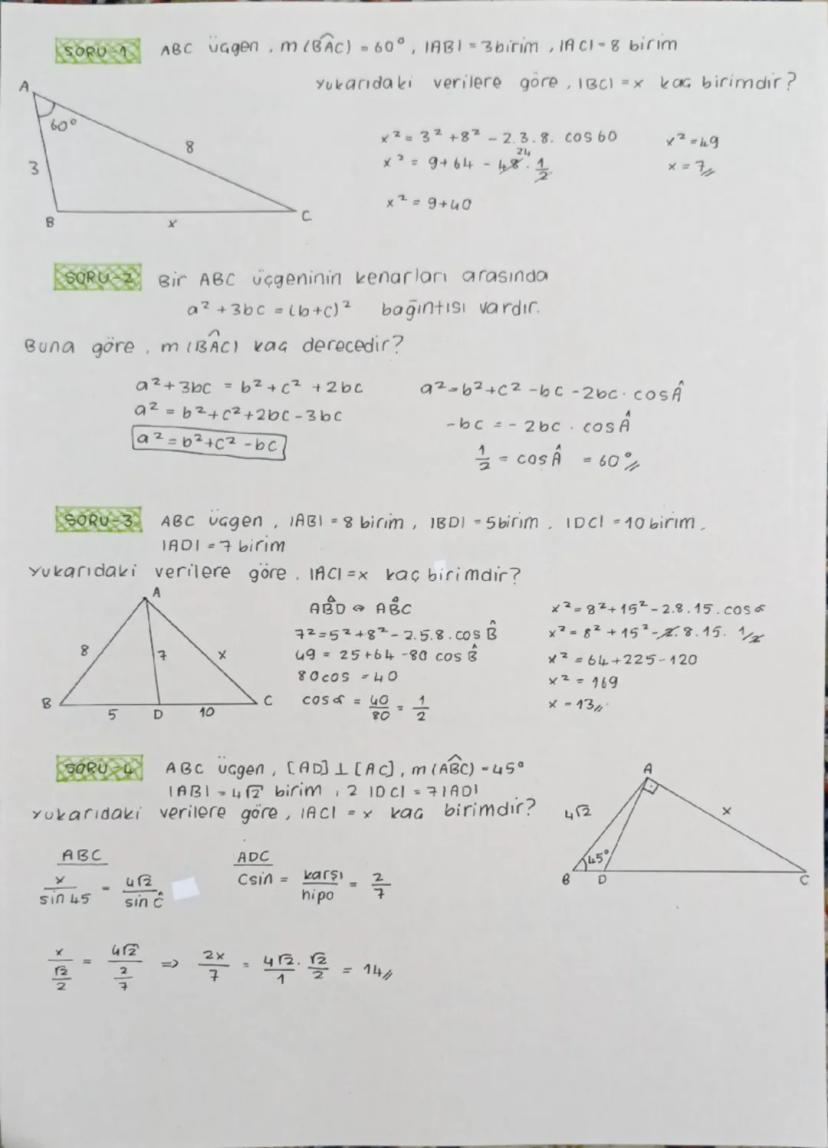 SORU-1 ABC üçgen, m(BÂC) = 60°, |AB| = 3birim, |AC| = 8 birim
yukarıdaki verilere göre, |BC| = x kaç birimdir?
A
60°
8
3
B
x
C
x² = 3² + 8² - 2.3.8. cos60
x² = 9+64 - 48 . 1/2
24
x² = 9+40
x² = 49
x = 7//
SORU-2 Bir ABC üçgeninin kenarları arasında
a² + 3bc = (b+c)² bağıntısı vardır.
Buna göre, m(BÂC) kaç derecedir?
a² + 3bc = b² + c² + 2bc
a² = b² + c² + 2bc - 3bc
a² = b² + c² - bc
a² = b² + c² - bc - 2bc . cos Â
-bc = - 2bc . cos Â
1/2 = cos Â = 60°//
SORU-3 ABC üçgen, |AB| = 8 birim, |BD| = 5birim, |DC| = 10 birim,
|AD| = 7 birim
yukarıdaki verilere göre, |AC| = x kaç birimdir?
A
8
7
x
B
5
D
10
C
ABD ⇔ ABC
7² = 5² + 8² - 2.5.8. cos B̂
49 = 25+64 - 80 cos B̂
80cos = 40
cos α = 40/80 = 1/2
x² = 8² + 15² - 2.8.15. cos α
x² = 8² + 15² - 2.8.15. 1/2
x² = 64+225-120
x² = 169
x = 13//
SORU-4 ABC üçgen, [AD] ⊥ [AC], m(ABC) = 45°
|AB| = 4√2 birim, 2 |DC| = 7|AD|
yukarıdaki verilere göre, |AC| = x kaç birimdir?
A
4√2
x
45°
B
D
C
ABC
x/sin 45 = 4√2/sin ĉ
ADC
Csin = karşı/hipo = 2/7
x/(√2/2) = 4√2/(2/7) ⇒ 2x/7 = 4√2/1 . √2/2 = 14//